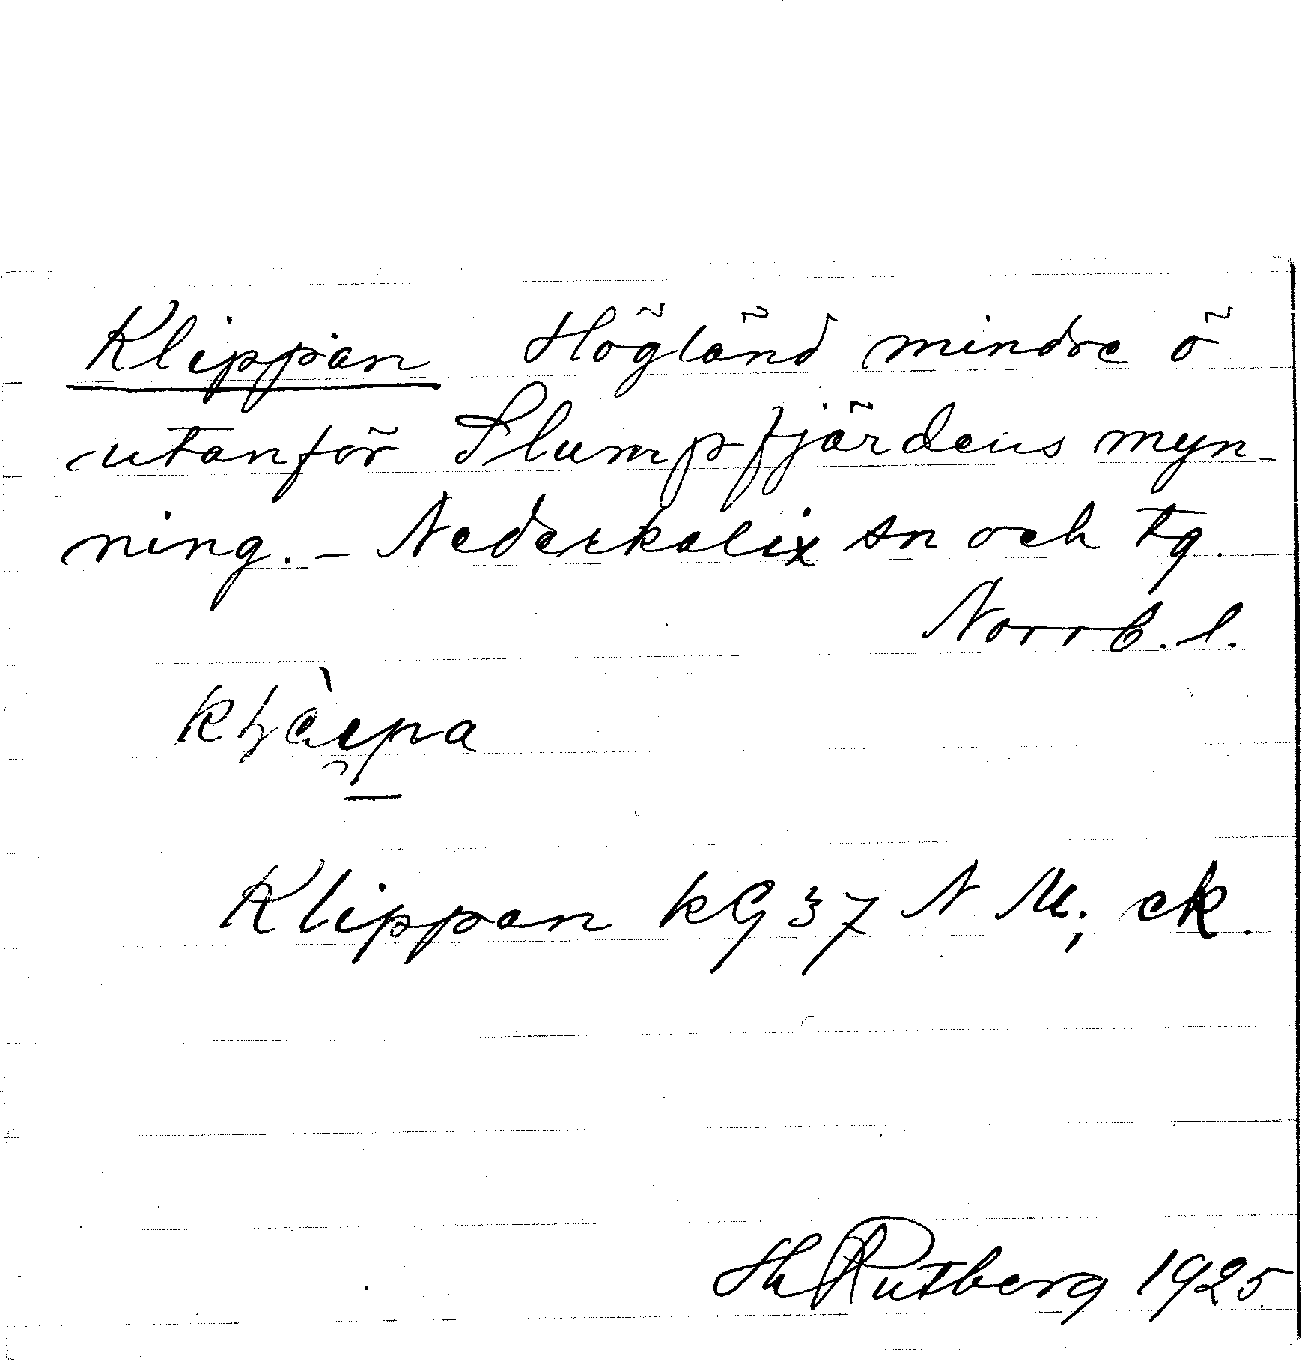 Klippan Högländ mindre ö
utanför Slumpfjärdens myn-
ning. - Nederkalix sn och tg
Norrb. l.
Klippan kG 37 N M; ek.
Hh Rutberg 1925